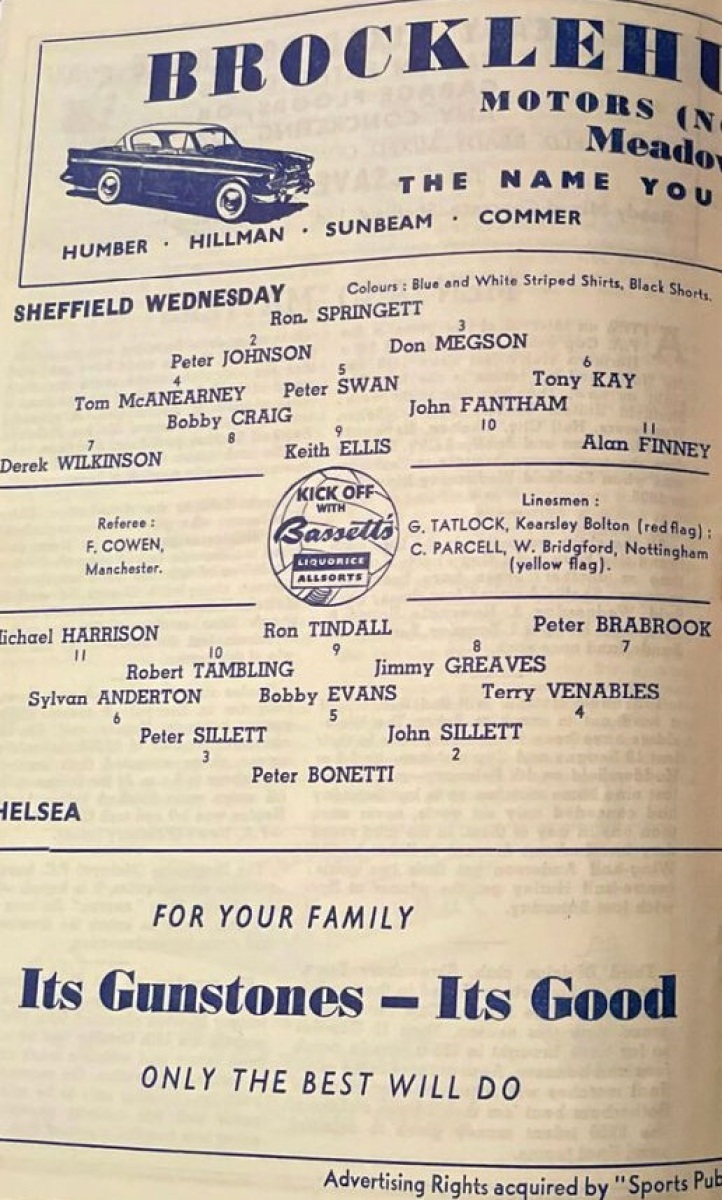 BROCKLEHU
MOTORS (NO
Meadow
THE NAME YOU
HUMBER · HILLMAN · SUNBEAM · COMMER
SHEFFIELD WEDNESDAY
Colours : Blue and White Striped Shirts, Black Shorts.
Ron. SPRINGETT
2 3
Peter JOHNSON Don MEGSON
4 5 6
Tom McANEARNEY Peter SWAN Tony KAY
Bobby CRAIG John FANTHAM
7 8 9 10 11
Derek WILKINSON Keith ELLIS Alan FINNEY
KICK OFF
WITH
Bassett's
LIQUORICE
ALLSORTS
Referee :
F. COWEN,
Manchester.
Linesmen :
G. TATLOCK, Kearsley Bolton (red flag) :
C. PARCELL, W. Bridgford, Nottingham
(yellow flag).
ichael HARRISON Ron TINDALL Peter BRABROOK
11 10 9 8 7
Robert TAMBLING Jimmy GREAVES
Sylvan ANDERTON Bobby EVANS Terry VENABLES
6 5 4
Peter SILLETT John SILLETT
3 2
Peter BONETTI
HELSEA
FOR YOUR FAMILY
Its Gunstones — Its Good
ONLY THE BEST WILL DO
Advertising Rights acquired by "Sports Pub